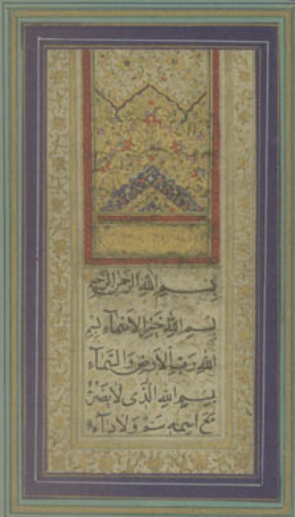 بِسْمِ اللهِ الرَّحْمٰنِ الرَّحِيمِ
بِسْمِ اللهِ خَيْرِ الْاَسْمَآءِ بِسْمِ
اللهِ رَبِّ الْاَرْضِ وَالسَّمَآءِ
بِسْمِ اللهِ الَّذِى لَا يَضُرُّ
مَعَ اسْمِهِ سَمٌّ وَلَا دَآءٌ